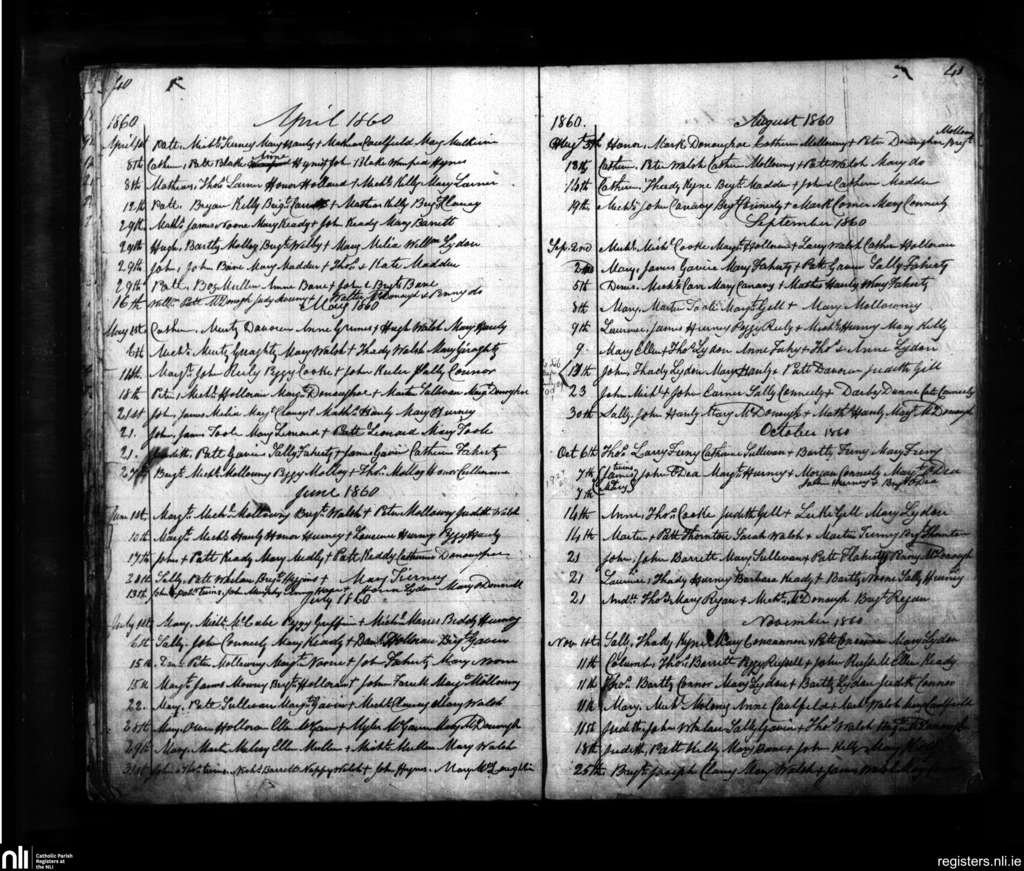 40
1860 April 1860
April 1st Patt, Michl Tierney Mary Hanly + Mathias Caulfield Mary
8th Cathn, Patt Blake Anne Hynes + Joh Blake Hynes
8th Mathias, Thos Larner Honor Holland + Michl Kelly Mary Larner
12th Patt. Bryan Kelly Brigt + Mathias Kelly Brigt Clancy
29th Michl James Noone Mary Ready + John Ready Mary Barrett
29th Hugh, Bartly Molloy Brigt + Mary Melia Willm Lydon
29th John, John Bane Mary Madden + Thos & Kate Madden
29th Patt. Mullen Anne Bane + John & Brigt Bane
16th Willm Patt McDonagh Judy + Walter McDonagh & Penny do
May 1860
May 1st Cathern, Murty Anne Grimes + Hugh Walsh Mary Hanly
6th Michl Murty Geraghty Mary Walsh + Thady Walsh Mary Geraghty
14th Margt John Reily Peggy Cooke + John Sally Connor
18th Peter, Michl Holloran Margt Donaghoe + Martin Sullivan Margt Donaghoe
21st John, James Melia Margt Clancy + Mathw Hanly May Hurney
21. John James Toole Mary Leonard + Patt Leonard Mary Toole
21. Judith, Patt Gavin Sally Faherty + James Gavin Catherine Faherty
27th Brigt Michl Molloway Peggy Molloy + Thos Molloy Honor
June 1860
June 1st Margt Michl Molloway Brigt Walsh + Peter Molloway Judith Walsh
10th Margt Michl Hanly Honor Hurney + Laurence Hurney Peggy Hanly
17th John + Patt Ready Mary + Patt Reddy Catherine Donoughoe
24th Sally, Patt Whelan Brigt Higgins + Mary Tierney
13th John twins, John + Lydon Mary
July 1860
July 1st Mary, Michl McCabe Peggy Griffin + Michl Biddy Hurney
6th Sally, John Connely Mary Ready + Danl Holloran Brigt Gavin
15th Danl Peter Molloway Margt Noone + John Faherty Mary Noone
15th Margt James Mooney Brigt Holloran + John Farrell Margt Molloway
22. Mary, Patt Sullivan Margt Gavin + Michl Clancy Mary Walsh
Mary Owen Holloran Ellen McGann + Myles McGann Mary McDonough
29th Mary, Martn Ellen Mullen + Michl Mullen Mary Walsh
31st John & Thos twins. Michl Barrett Nappy Walsh + John Hynes. Mary McLaughlin
41
1860. August 1860
Augt 5th Honor Mark Donaghoe Cathern Mollowny + Peter Donaghoe Brigt Mollowny
13th Cathern Peter Walsh Cathn Mollowny + Patt Walsh Mary do
14th Cathern Thady Kyne Brigt Madden + John & Cathern Madden
19th Michl John Canavy Brigt Connely + Mark Comer Mary Connely
September 1860
Sep. 2nd Michl Michl Cooke Margt Holloran + Larry Walsh Cathn Holloran
2nd Mary, James Gavin Mary Faherty + Patt Gavin Sally Faherty
5th Michl Carr Mary Canavy + Mary Faherty
8th Mary, Martin Toole Gill + Mary Molloway
9th Laurence, James Hurney Peggy Reily + Michl Hurney Mary Kelly
9. Mary Ellen + Thos Lydon Anne Fahy + Thos & Anne Lydon
John, Thady Lydon Mary Hanly + Patt Judith Gill
23 John Michl + John Sally Connely + Darby Cath Connely
30th Sally, John Hanly Mary McDonough + Mathw Hanly Margt McDonough
October 1860
Oct 6th Thos Larry Furey Catherine Sullivan + Bartly Furey Mary Furey
7th twins John OShea Margt Hurney + Morgan Connely Margt OShea
7th Mary John Hurney & Brigt OShea
14th Anne, Thos Cooke Judith Gill + Luke Gill Mary Lydon
14th Martin + Patt Thornton Sarah Walsh + Martin Tierney Brigt Thornton
21 John, John Barrett Mary Sullivan + Patt Flaherty Penny McDonough
21 Laurence, Thady Hurney Barbara Ready + Bartly Noone Sally Hurney
21 Andw Thos Mary Ryan + Michl McDonough Brigt Regan
November 1860
Nov. 4th Sally, Thady Kyne Mary Concannon + Patt Mary Lydon
11th Columb, Thos Barrett Peggy Russell + John Russell Ellen Ready
11th Thos. Bartly Connor Mary Lydon + Bartly Lydon Judith Connor
11th Mary, Michl Moloney Anne Caulfield + Walsh Mary Caulfield
11th Judith, John Whelan Sally Gavin + Thos Walsh
18th Judith, Patt Kelly Mary Bane + John Kelly Mary
25th Brigt Joseph Clancy Mary Walsh + James Walsh
nli
Catholic Parish
Registers at
the NLI
registers.nli.ie